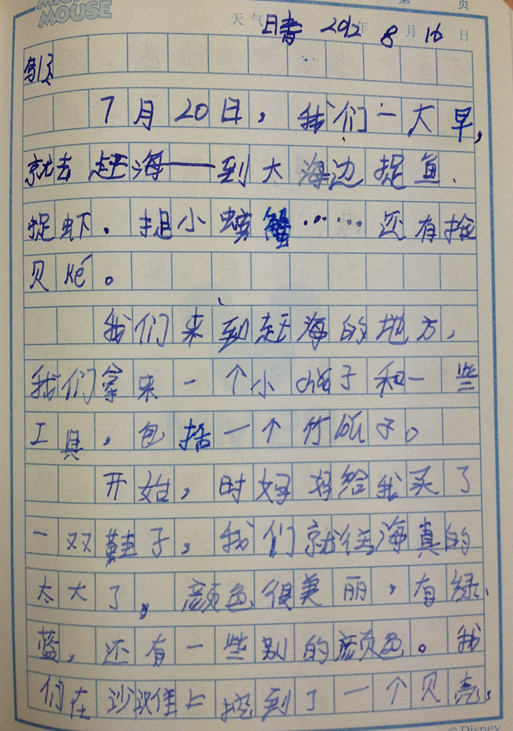 MICKEY MOUSE
第 页
天气 晴 2012年 8月 16日
7月20日，我们一大早，
就去赶海——到大海边捉鱼、
捉虾。捉小螃蟹……还有捡
贝ké。
我们来到赶海的地方，
我们拿来一个小 子和一些
工具，包括一个竹 子。
开始，时 好给我买了
一双鞋子，我们就往海真的
太大了，颜色很美丽，有绿、
蓝，还有一些别的颜色。我
们在沙 上挖到了一个贝壳，
© Disney